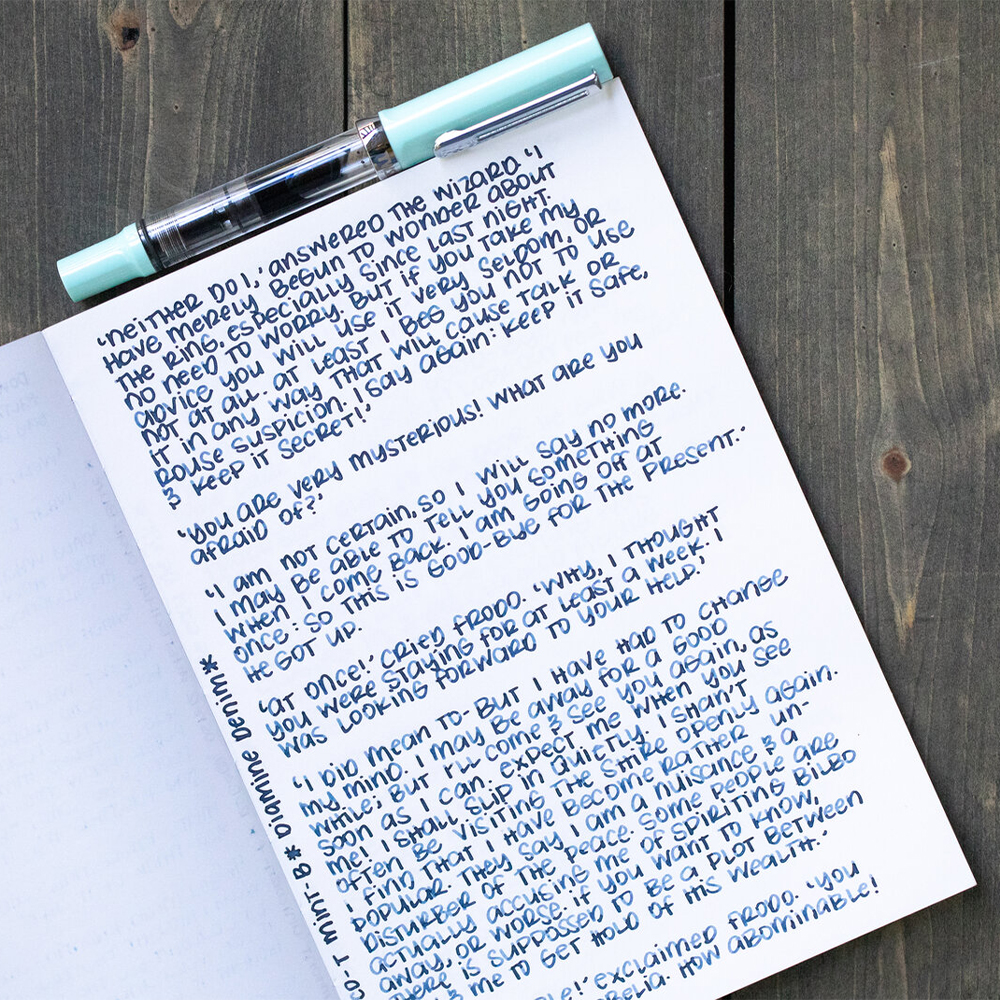 'Neither do I,' answered the wizard. 'I
have merely begun to wonder about
the ring, especially since last night.
No need to worry. But if you take my
advice you will use it very seldom, or
not at all. At least I beg you not to use
it in any way that will cause talk or
rouse suspicion. I say again: keep it safe,
& keep it secret!'
'You are very mysterious! What are you
afraid of?'
'I am not certain, so I will say no more.
I may be able to tell you something
when I come back. I am going off at
once: so this is good-bye for the present.'
He got up.
'At once!' cried Frodo. 'Why, I thought
you were staying for at least a week. I
was looking forward to your help.'
'I did mean to- but I have had to change
my mind. I may be away for a good
while; but I'll come & see you again, as
soon as I can. Expect me when you see
me! I shall slip in quietly. I shan't
often be visiting the Shire openly again.
I find that I have become rather un-
popular. They say I am a nuisance & a
disturber of the peace. Some people are
actually accusing me of spiriting Bilbo
away, or worse. If you want to know,
there is suppossed to be a plot between
& me to get hold of his wealth.'
exclaimed Frodo. 'You
How abominable!
CO-T Mint-B * Diamine Denim *